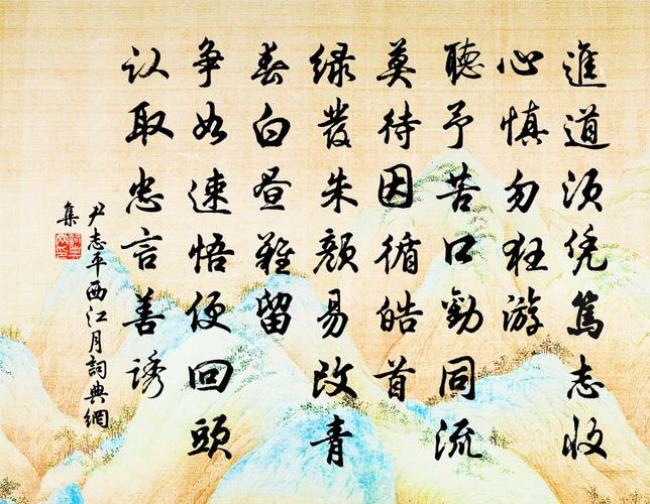 進道须凭篤志收
心慎勿狂游
聽予苦口勸同流
莫待因循皓首
绿鬓朱颜易改青
春白昼難留
争如速悟便回頭
认取忠言善诱
尹志平西江月詞典網
集